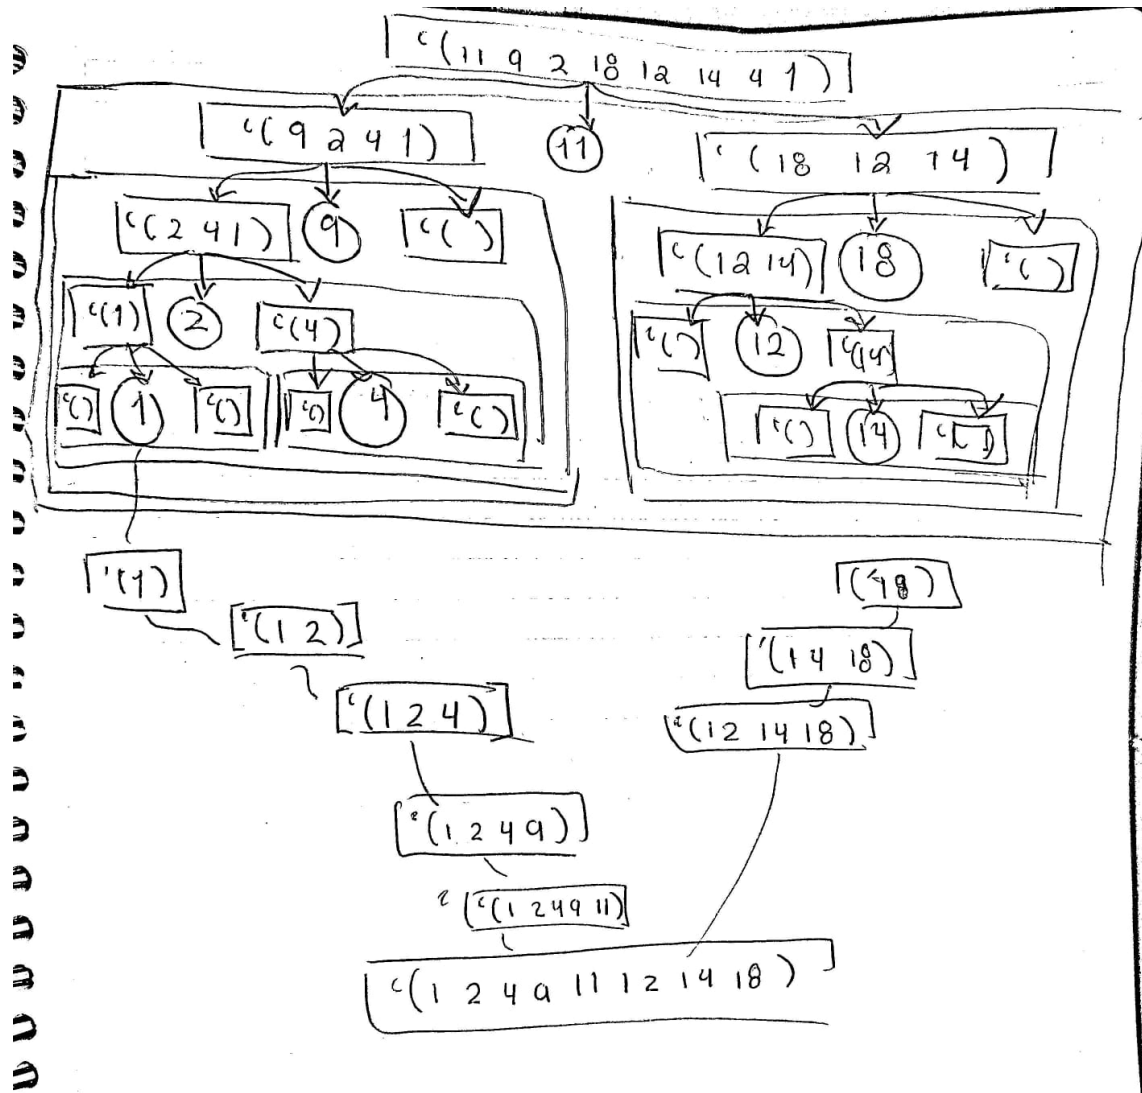 ‘(11 9 2 18 12 14 4 1)
‘(9 2 4 1) 11 ‘(18 12 14)
‘(2 4 1) 9 ‘( ) ‘(12 14) 18 ‘( )
‘(1) 2 ‘(4) ‘( ) 12 ‘(14)
‘( ) 1 ‘( ) ‘( ) 4 ‘( ) ‘( ) 14 ‘( )
'(1) (‘18)
‘(1 2) '(14 18)
‘(1 2 4) ‘(12 14 18)
‘(1 2 4 9)
‘(1 2 4 9 11)
‘(1 2 4 9 11 12 14 18)